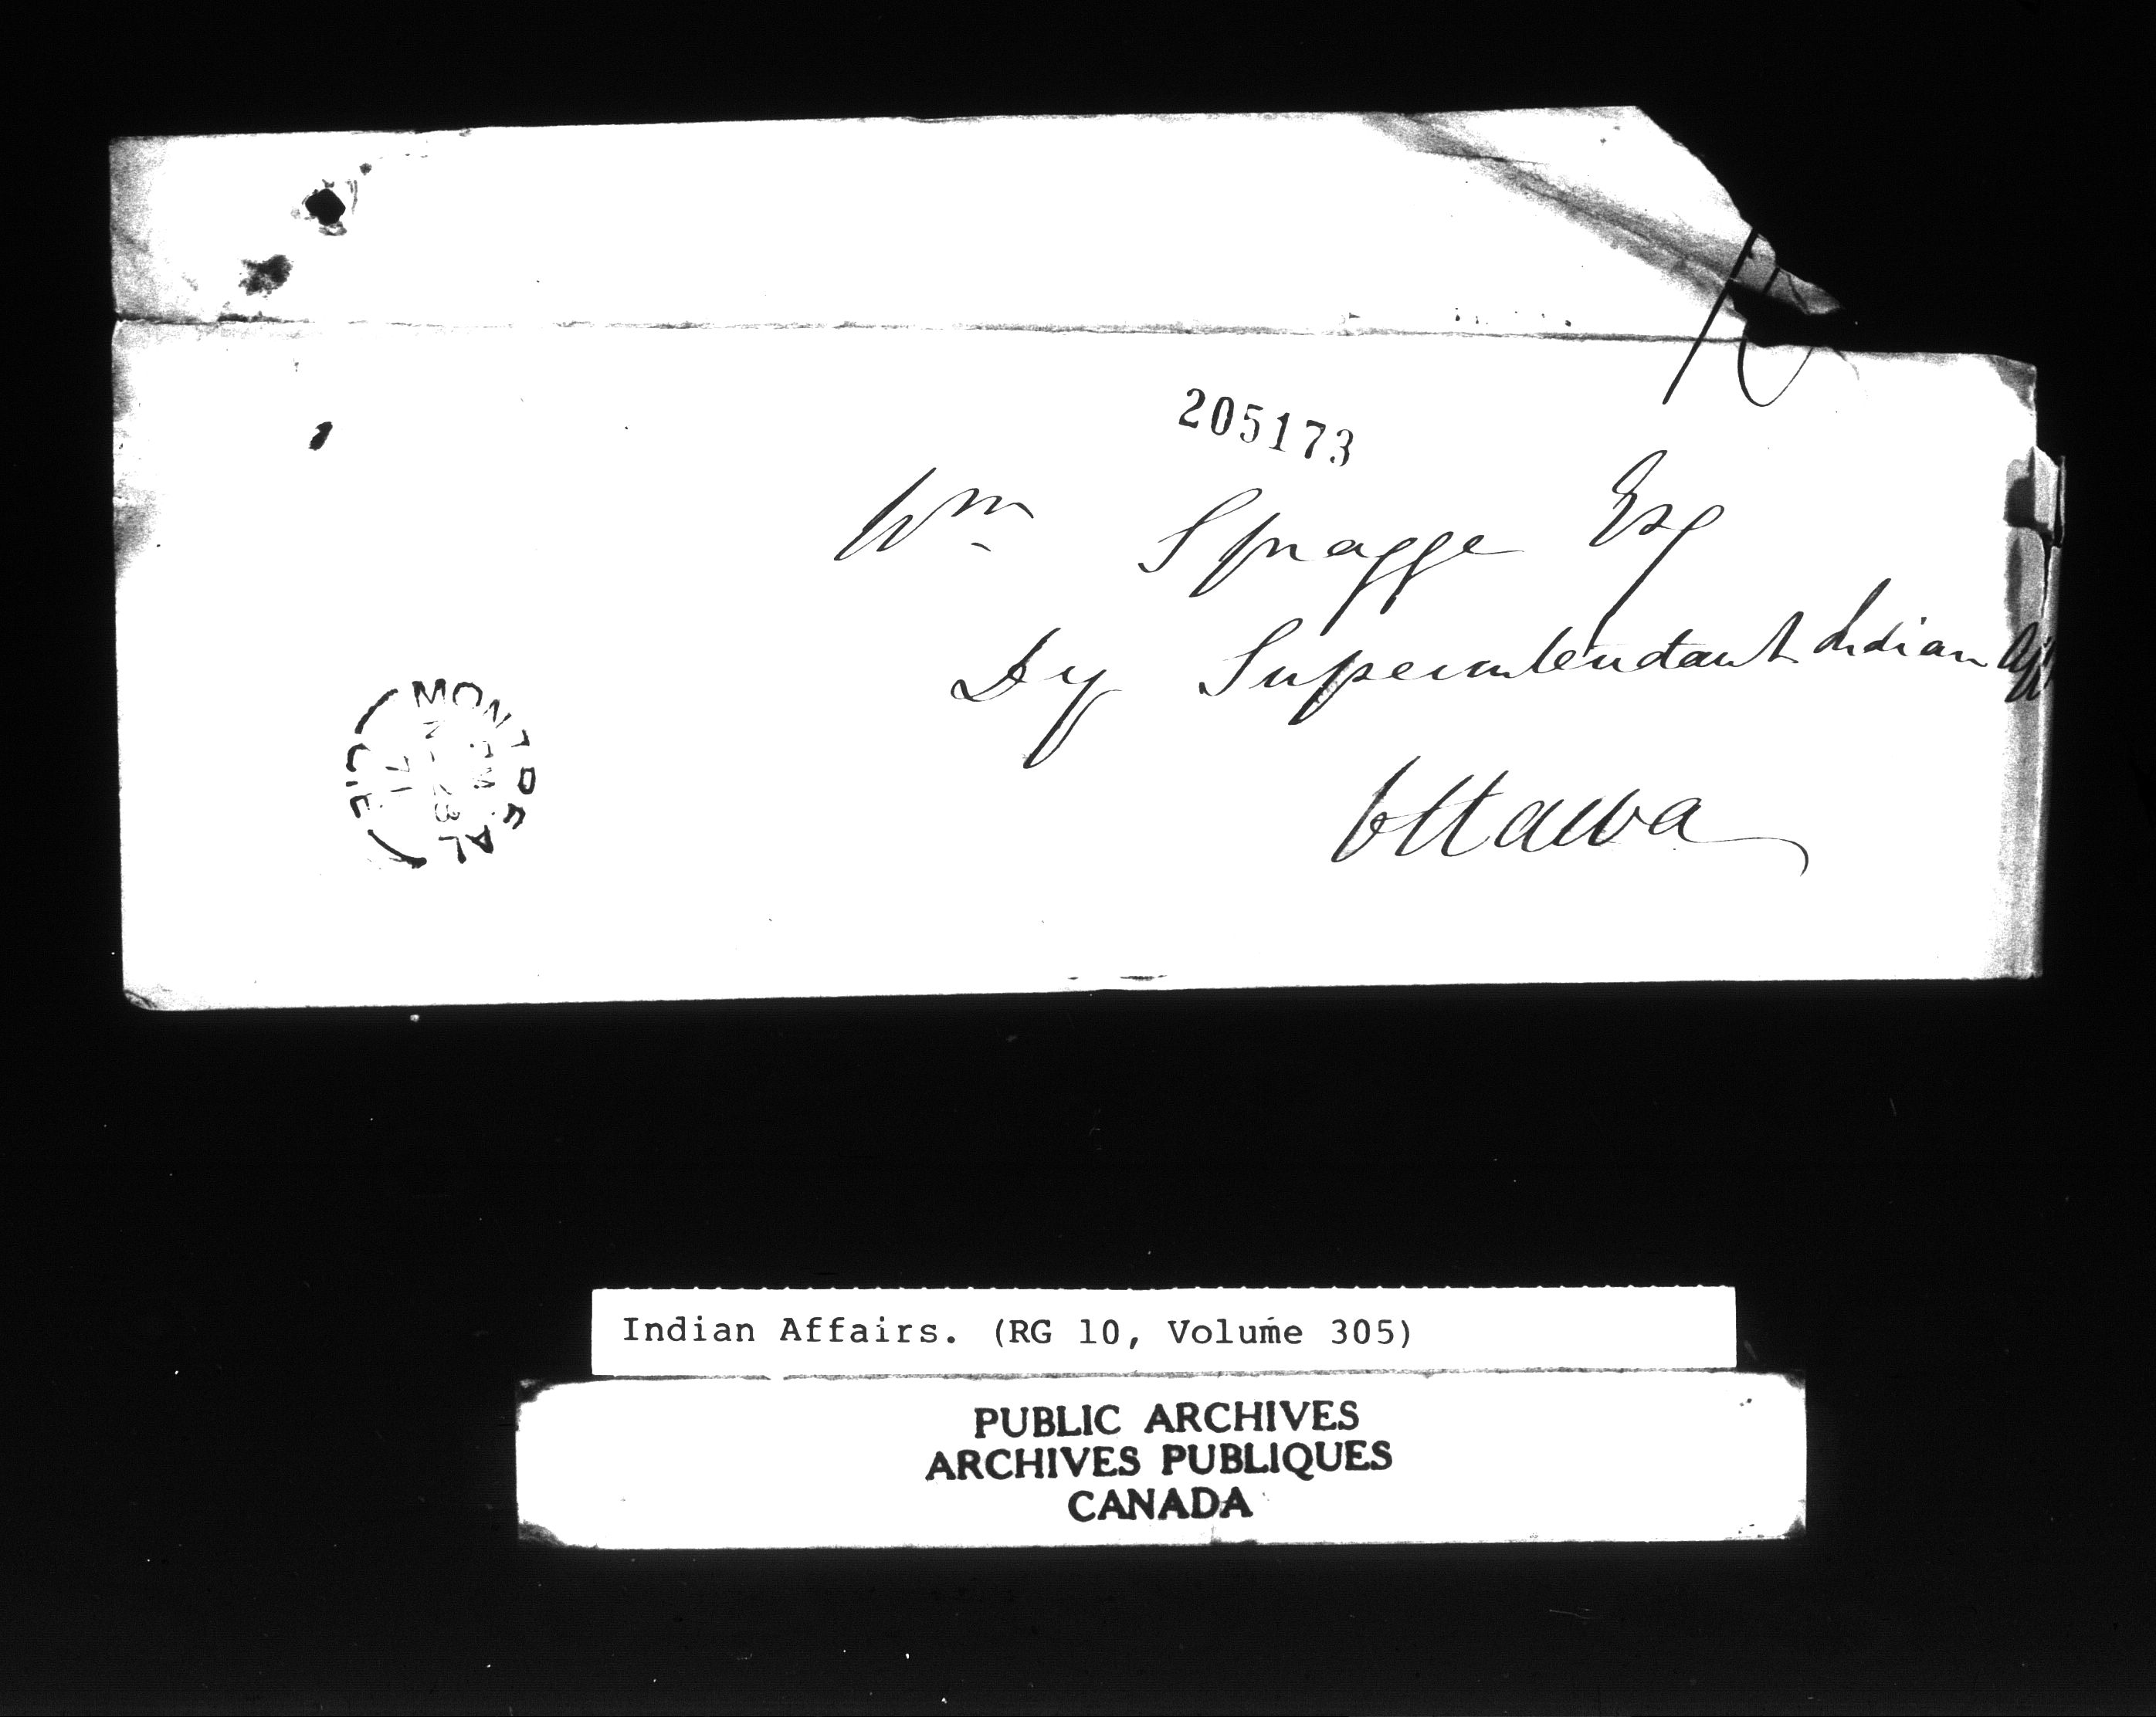 205173
Wm Spragge Esq
Dy Superintendant Indian
Ottawa
MONTREAL
PM
23
71
Indian Affairs. (RG 10, Volume 305)
PUBLIC ARCHIVES
ARCHIVES PUBLIQUES
CANADA